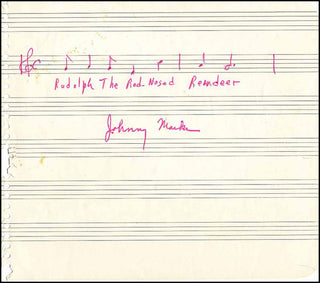 Rudolph The Red-Nosed Reindeer
Johnny Marks